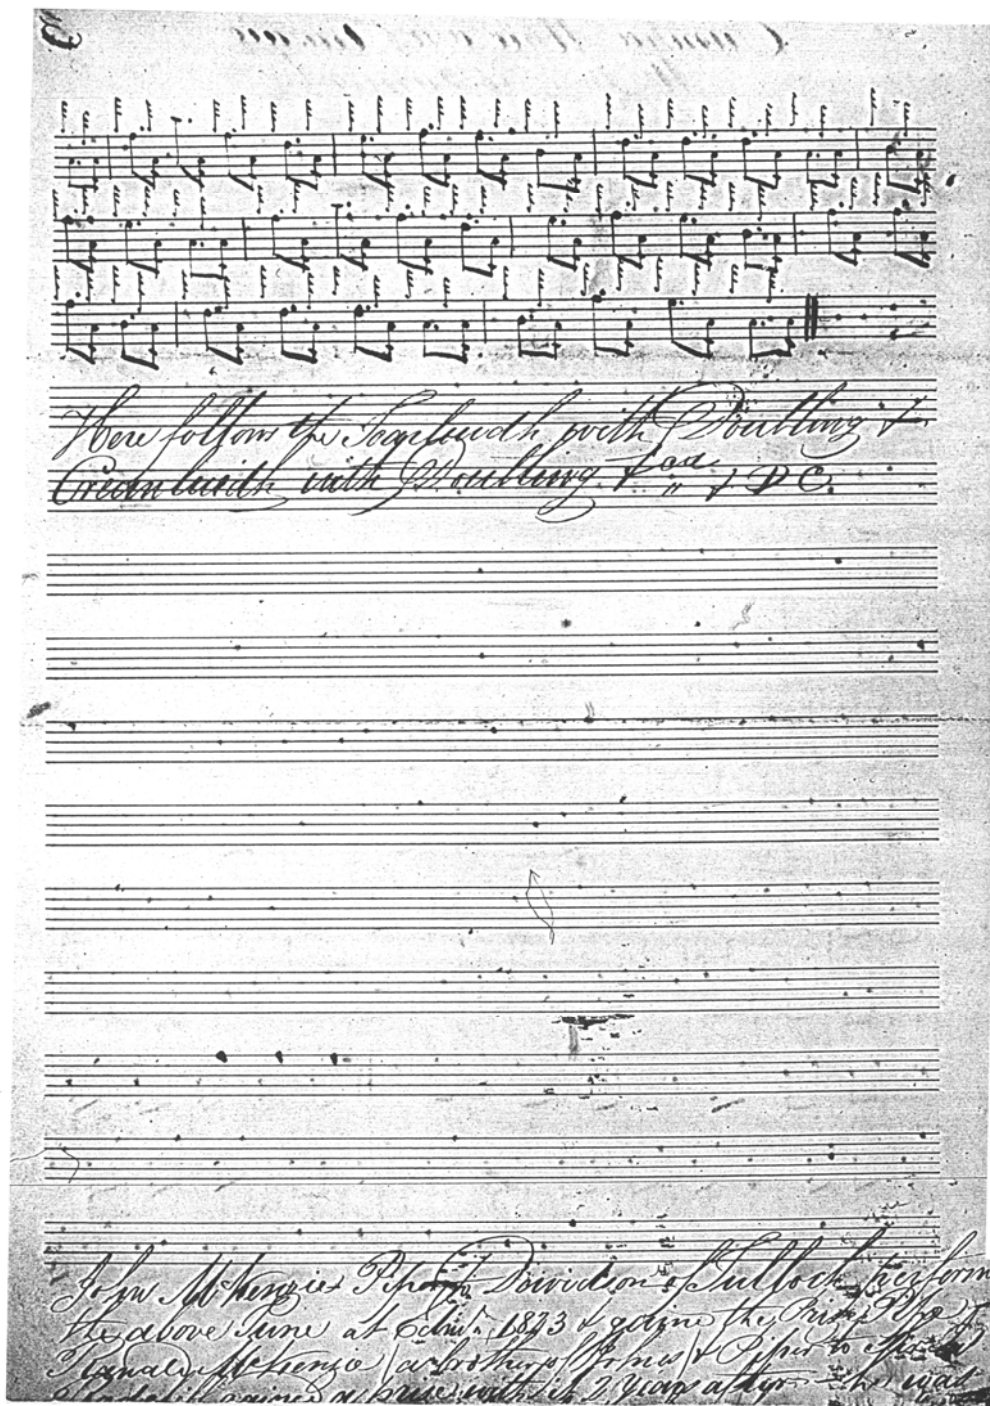 Here follows the Taorluidh with Doubling &
Creanluidh with Doubling & " & D C.
John McKenzie Piper Davidson of Tulloch perform
the above Tune at Edinr 1823 & gaine the Prize Pipe &
Ranald McKenzie (a brother of Johns) & Piper to
gained a prize with it 2 years after he was